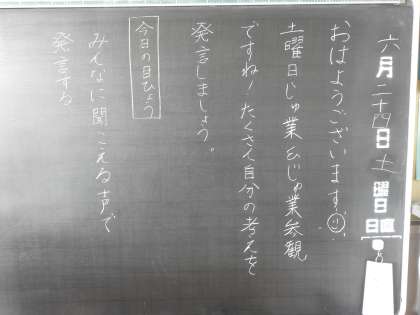 六月二十四日土曜日
日直
おはようございます。
土曜日じゅ業&じゅ業参観
ですね!たくさん自分の考えを
発言しましょう。
今日の目ひょう
みんなに聞こえる声で
発言する